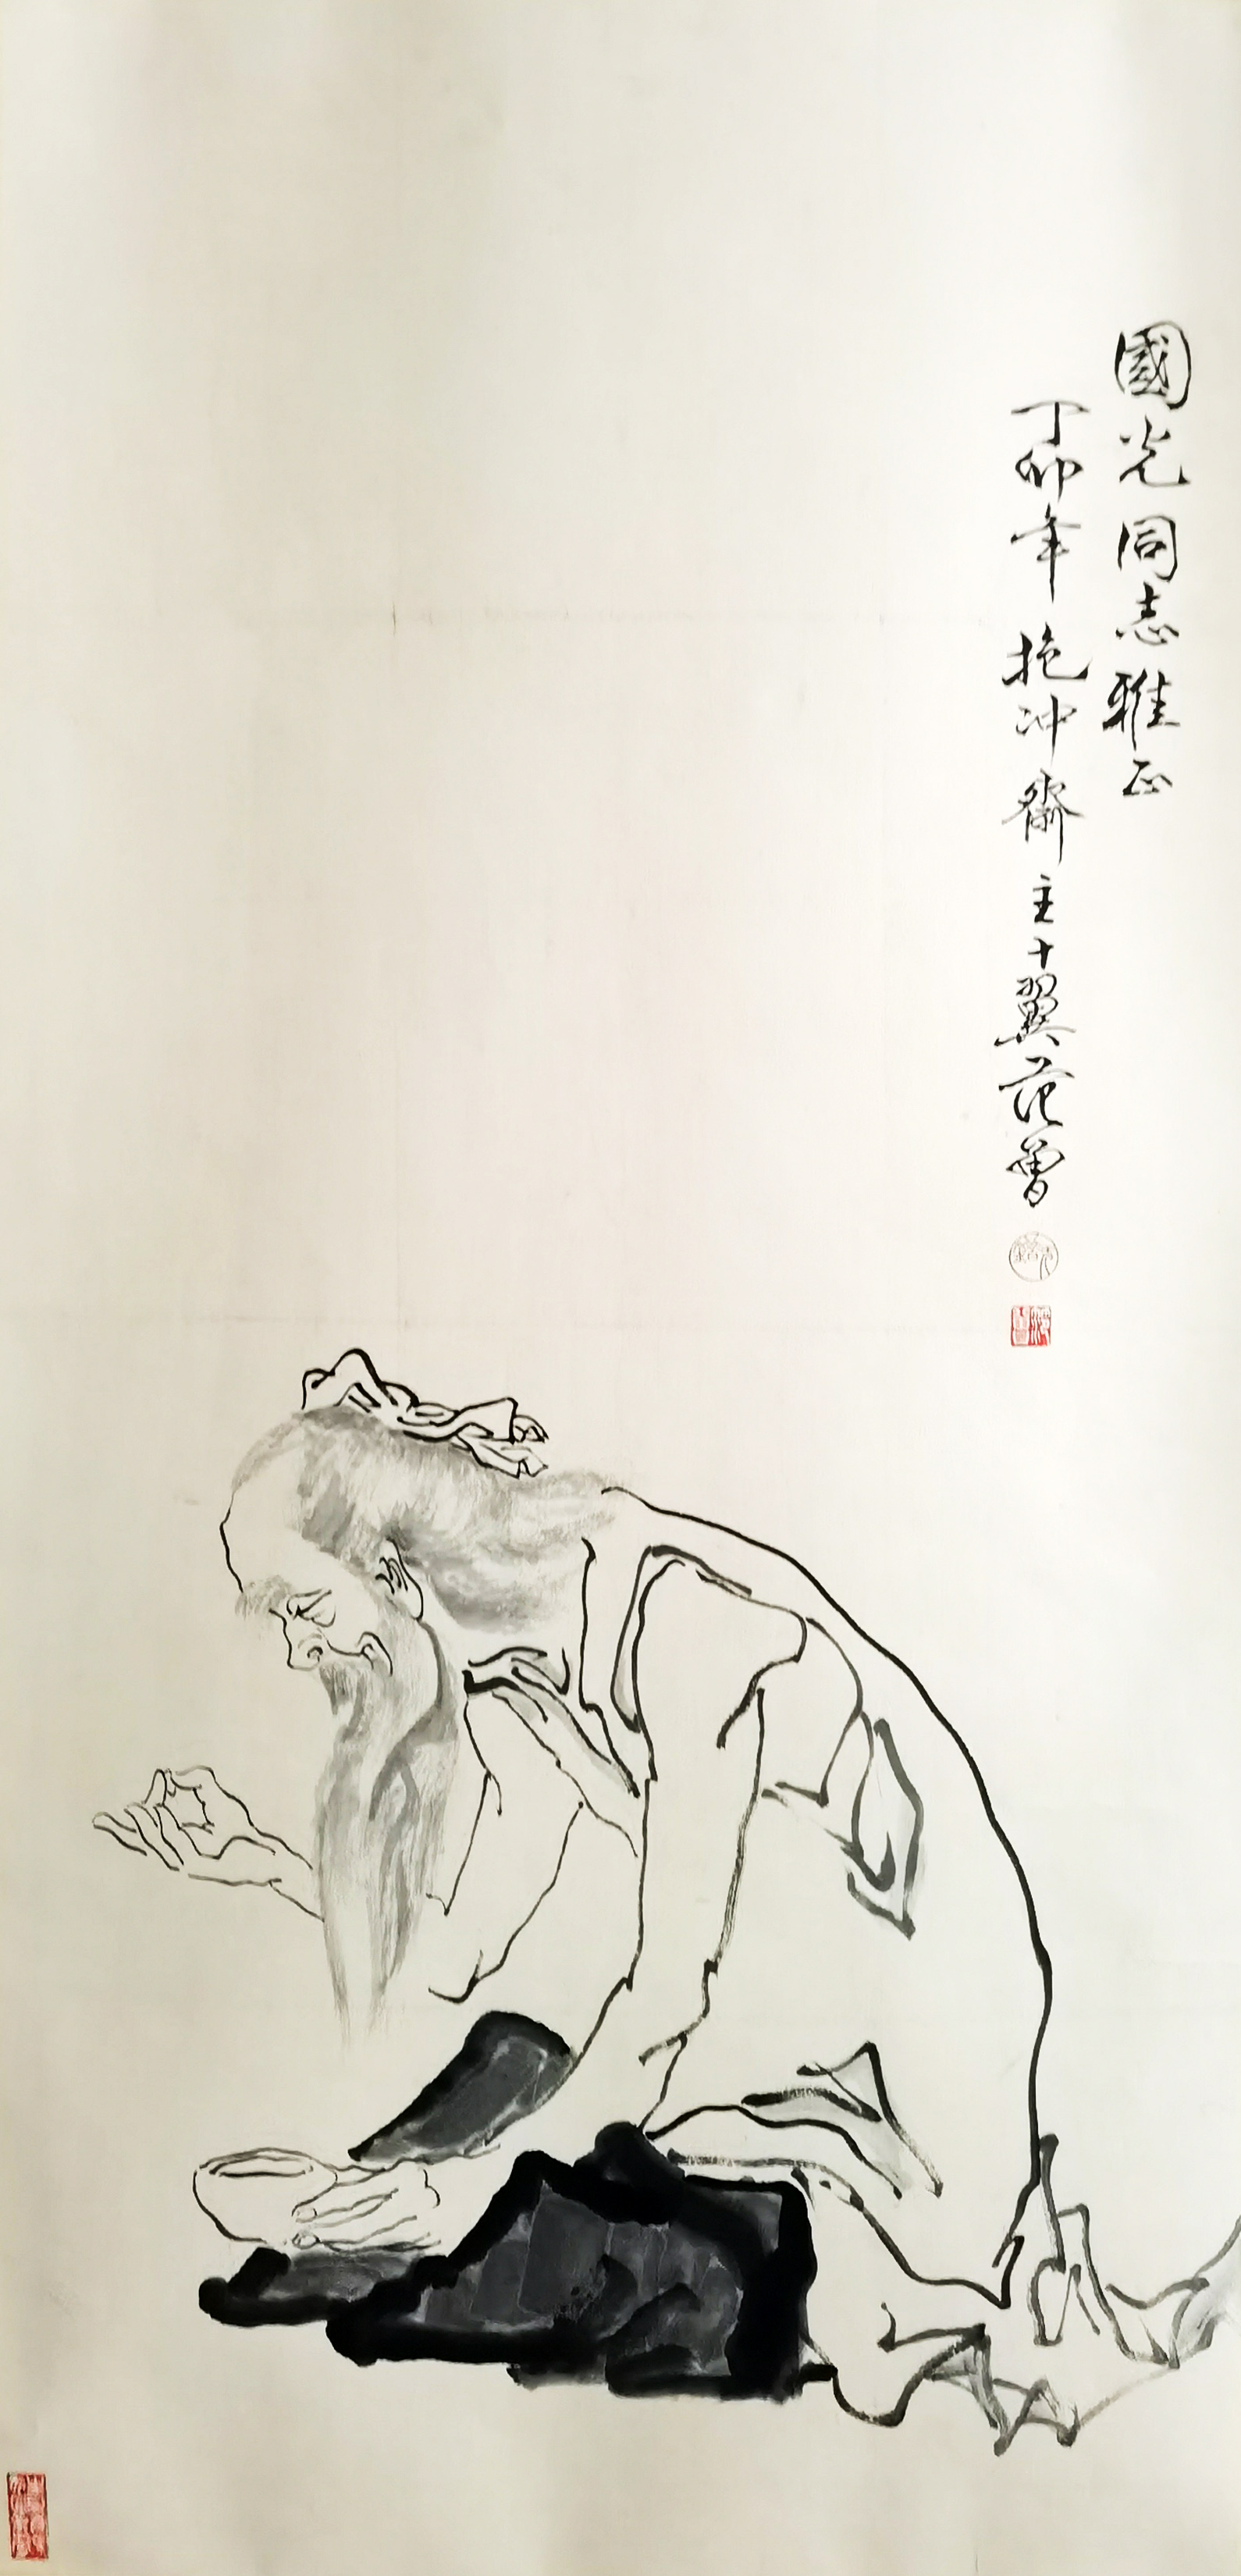 國光同志雅正
丁卯年 抱冲齋主十翼范曾